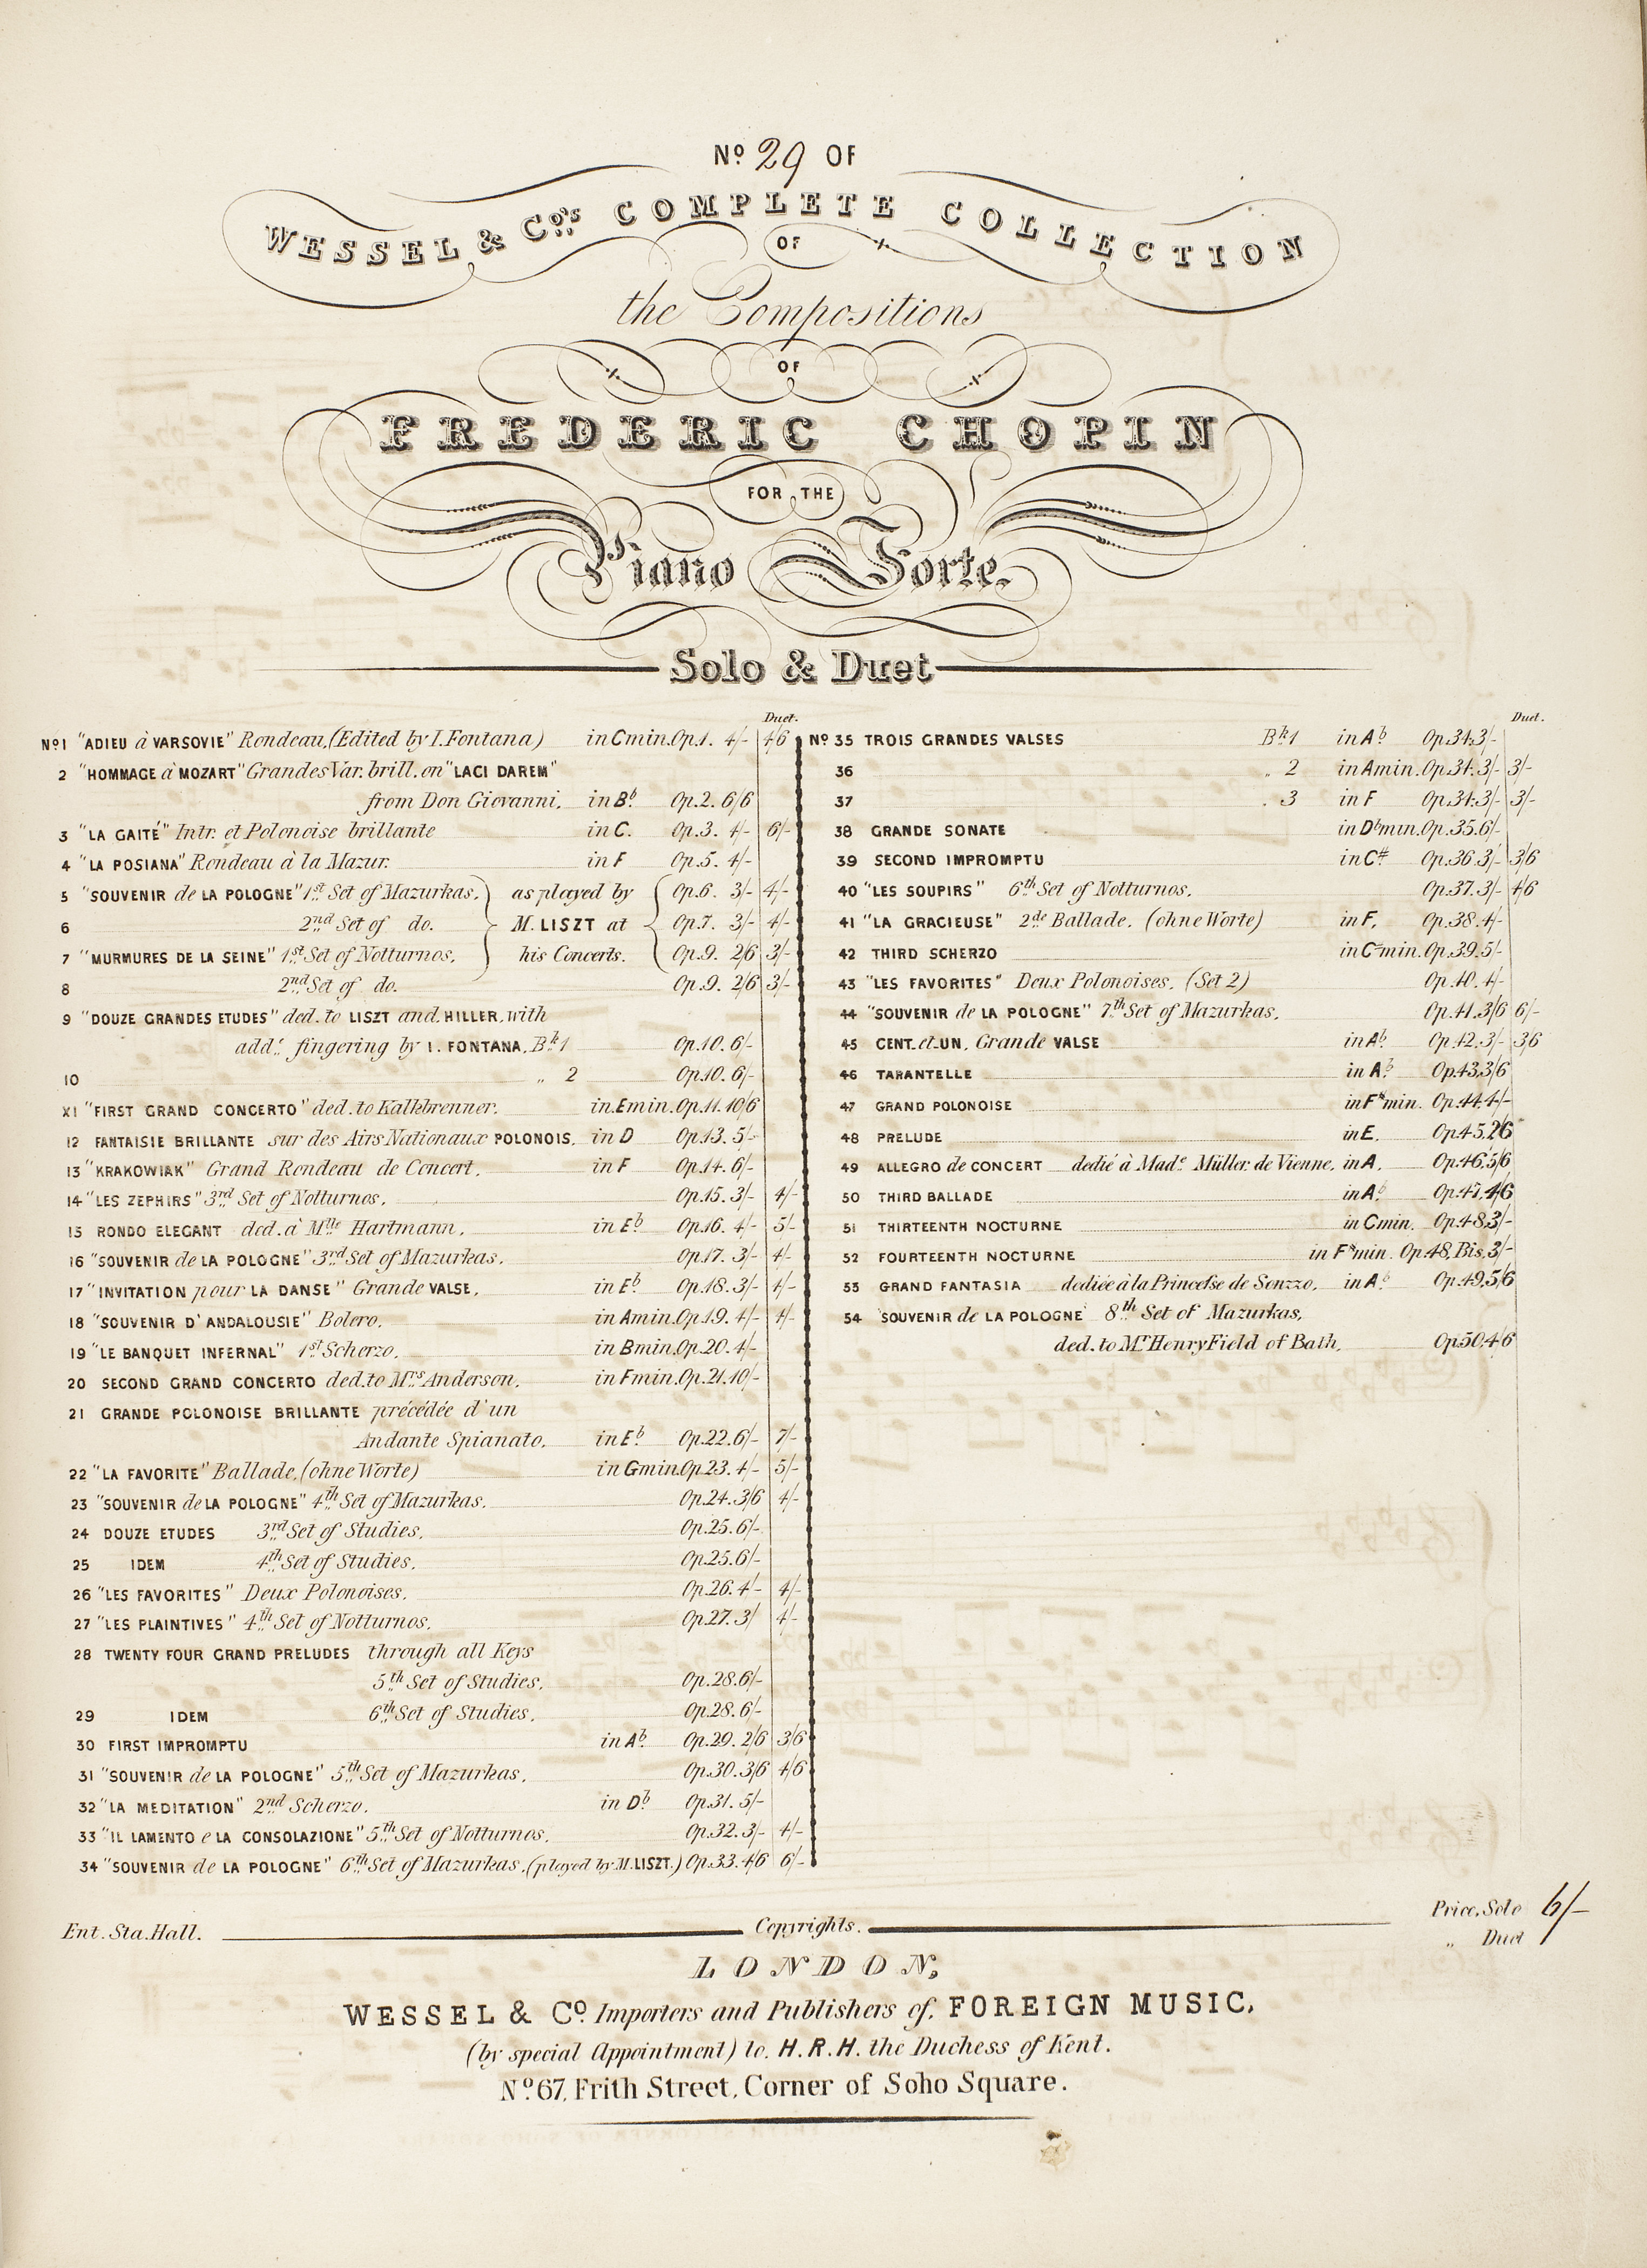 Nº 29 OF
WESSEL & Cº'S COMPLETE COLLECTION
OF
the Compositions
OF
FREDERIC CHOPIN
FOR THE
Piano Forte.
Solo & Duet
Duet.
Nº1 "ADIEU à VARSOVIE" Rondeau, (Edited by I. Fontana) in C min. Op.1. 4/- 4/6
2 "HOMMAGE à MOZART" Grandes Var. brill. on "LACI DAREM"
from Don Giovanni. in B♭ Op.2. 6/6
3 "LA GAITÉ" Intr. et Polonoise brillante in C. Op.3. 4/- 6/-
4 "LA POSIANA" Rondeau à la Mazur. in F Op.5. 4/-
5 "SOUVENIR de LA POLOGNE" 1st Set of Mazurkas, as played by Op.6. 3/- 4/-
6 2nd Set of do. M. LISZT at Op.7. 3/- 4/-
7 "MURMURES DE LA SEINE" 1st Set of Notturnos, his Concerts. Op.9. 2/6 3/-
8 2nd Set of do. Op.9. 2/6 3/-
9 "DOUZE GRANDES ETUDES" ded. to LISZT and HILLER, with
addl. fingering by I. FONTANA, Bk 1 Op.10. 6/-
10 " 2 Op.10. 6/-
XI "FIRST GRAND CONCERTO" ded. to Kalkbrenner. in E min. Op.11. 10/6
12 FANTAISIE BRILLANTE sur des Airs Nationaux POLONOIS. in D Op.13. 5/-
13 "KRAKOWIAK" Grand Rondeau de Concert. in F Op.14. 6/-
14 "LES ZEPHIRS" 3rd Set of Notturnos. Op.15. 3/- 4/-
15 RONDO ELEGANT ded. à Mlle Hartmann. in E♭ Op.16. 4/- 5/-
16 "SOUVENIR de LA POLOGNE" 3rd Set of Mazurkas. Op.17. 3/- 4/-
17 "INVITATION pour LA DANSE" Grande VALSE. in E♭ Op.18. 3/- 4/-
18 "SOUVENIR D'ANDALOUSIE" Bolero. in A min. Op.19. 4/- 4/-
19 "LE BANQUET INFERNAL" 1st Scherzo. in B min. Op.20. 4/-
20 SECOND GRAND CONCERTO ded. to Mrs Anderson. in F min. Op.21. 10/-
21 GRANDE POLONOISE BRILLANTE précédée d'un
Andante Spianato. in E♭ Op.22. 6/- 7/-
22 "LA FAVORITE" Ballade, (ohne Worte) in G min. Op.23. 4/- 5/-
23 "SOUVENIR de LA POLOGNE" 4th Set of Mazurkas. Op.24. 3/6 4/-
24 DOUZE ETUDES 3rd Set of Studies. Op.25. 6/-
25 IDEM 4th Set of Studies. Op.25. 6/-
26 "LES FAVORITES" Deux Polonoises. Op.26. 4/- 4/-
27 "LES PLAINTIVES" 4th Set of Notturnos. Op.27. 3/ 4/-
28 TWENTY FOUR GRAND PRELUDES through all Keys
5th Set of Studies. Op.28. 6/-
29 IDEM 6th Set of Studies. Op.28. 6/-
30 FIRST IMPROMPTU in A♭ Op.29. 2/6 3/6
31 "SOUVENIR de LA POLOGNE" 5th Set of Mazurkas. Op.30. 3/6 4/6
32 "LA MEDITATION" 2nd Scherzo. in D♭ Op.31. 5/-
33 "IL LAMENTO e LA CONSOLAZIONE" 5th Set of Notturnos. Op.32. 3/- 4/-
34 "SOUVENIR de LA POLOGNE" 6th Set of Mazurkas. (played by M. LISZT.) Op.33. 4/6 6/-
Duet.
Nº 35 TROIS GRANDES VALSES Bk 1 in A♭ Op.34. 3/-
36 " 2 in A min. Op.34. 3/- 3/-
37 " 3 in F Op.34. 3/- 3/-
38 GRANDE SONATE in D♭ min. Op.35. 6/-
39 SECOND IMPROMPTU in C♯ Op.36. 3/- 3/6
40 "LES SOUPIRS" 6th Set of Notturnos. Op.37. 3/- 4/6
41 "LA GRACIEUSE" 2de Ballade. (ohne Worte) in F. Op.38. 4/-
42 THIRD SCHERZO in C♯ min. Op.39. 5/-
43 "LES FAVORITES" Deux Polonoises. (Set 2) Op.40. 4/-
44 "SOUVENIR de LA POLOGNE" 7th Set of Mazurkas. Op.41. 3/6 6/-
45 CENT-et-UN, Grande VALSE in A♭ Op.42. 3/- 3/6
46 TARANTELLE in A♭ Op.43. 3/6
47 GRAND POLONOISE in F♯ min. Op.44. 4/-
48 PRELUDE in E. Op.45. 2/6
49 ALLEGRO de CONCERT dedié à Made Müller de Vienne. in A. Op.46. 5/6
50 THIRD BALLADE in A♭ Op.47. 4/6
51 THIRTEENTH NOCTURNE in C min. Op.48. 3/-
52 FOURTEENTH NOCTURNE in F♯ min. Op.48. Bis. 3/-
53 GRAND FANTASIA dediée à la Princesse de Sonzzo. in A♭ Op.49. 5/6
54 "SOUVENIR de LA POLOGNE" 8th Set of Mazurkas,
ded. to Mr Henry Field of Bath. Op.50. 4/6
Ent. Sta. Hall. Copyrights. Price, Solo 6/-
" Duet
LONDON,
WESSEL & Cº Importers and Publishers of, FOREIGN MUSIC,
(by special Appointment) to, H.R.H. the Duchess of Kent.
Nº 67, Frith Street, Corner of Soho Square.